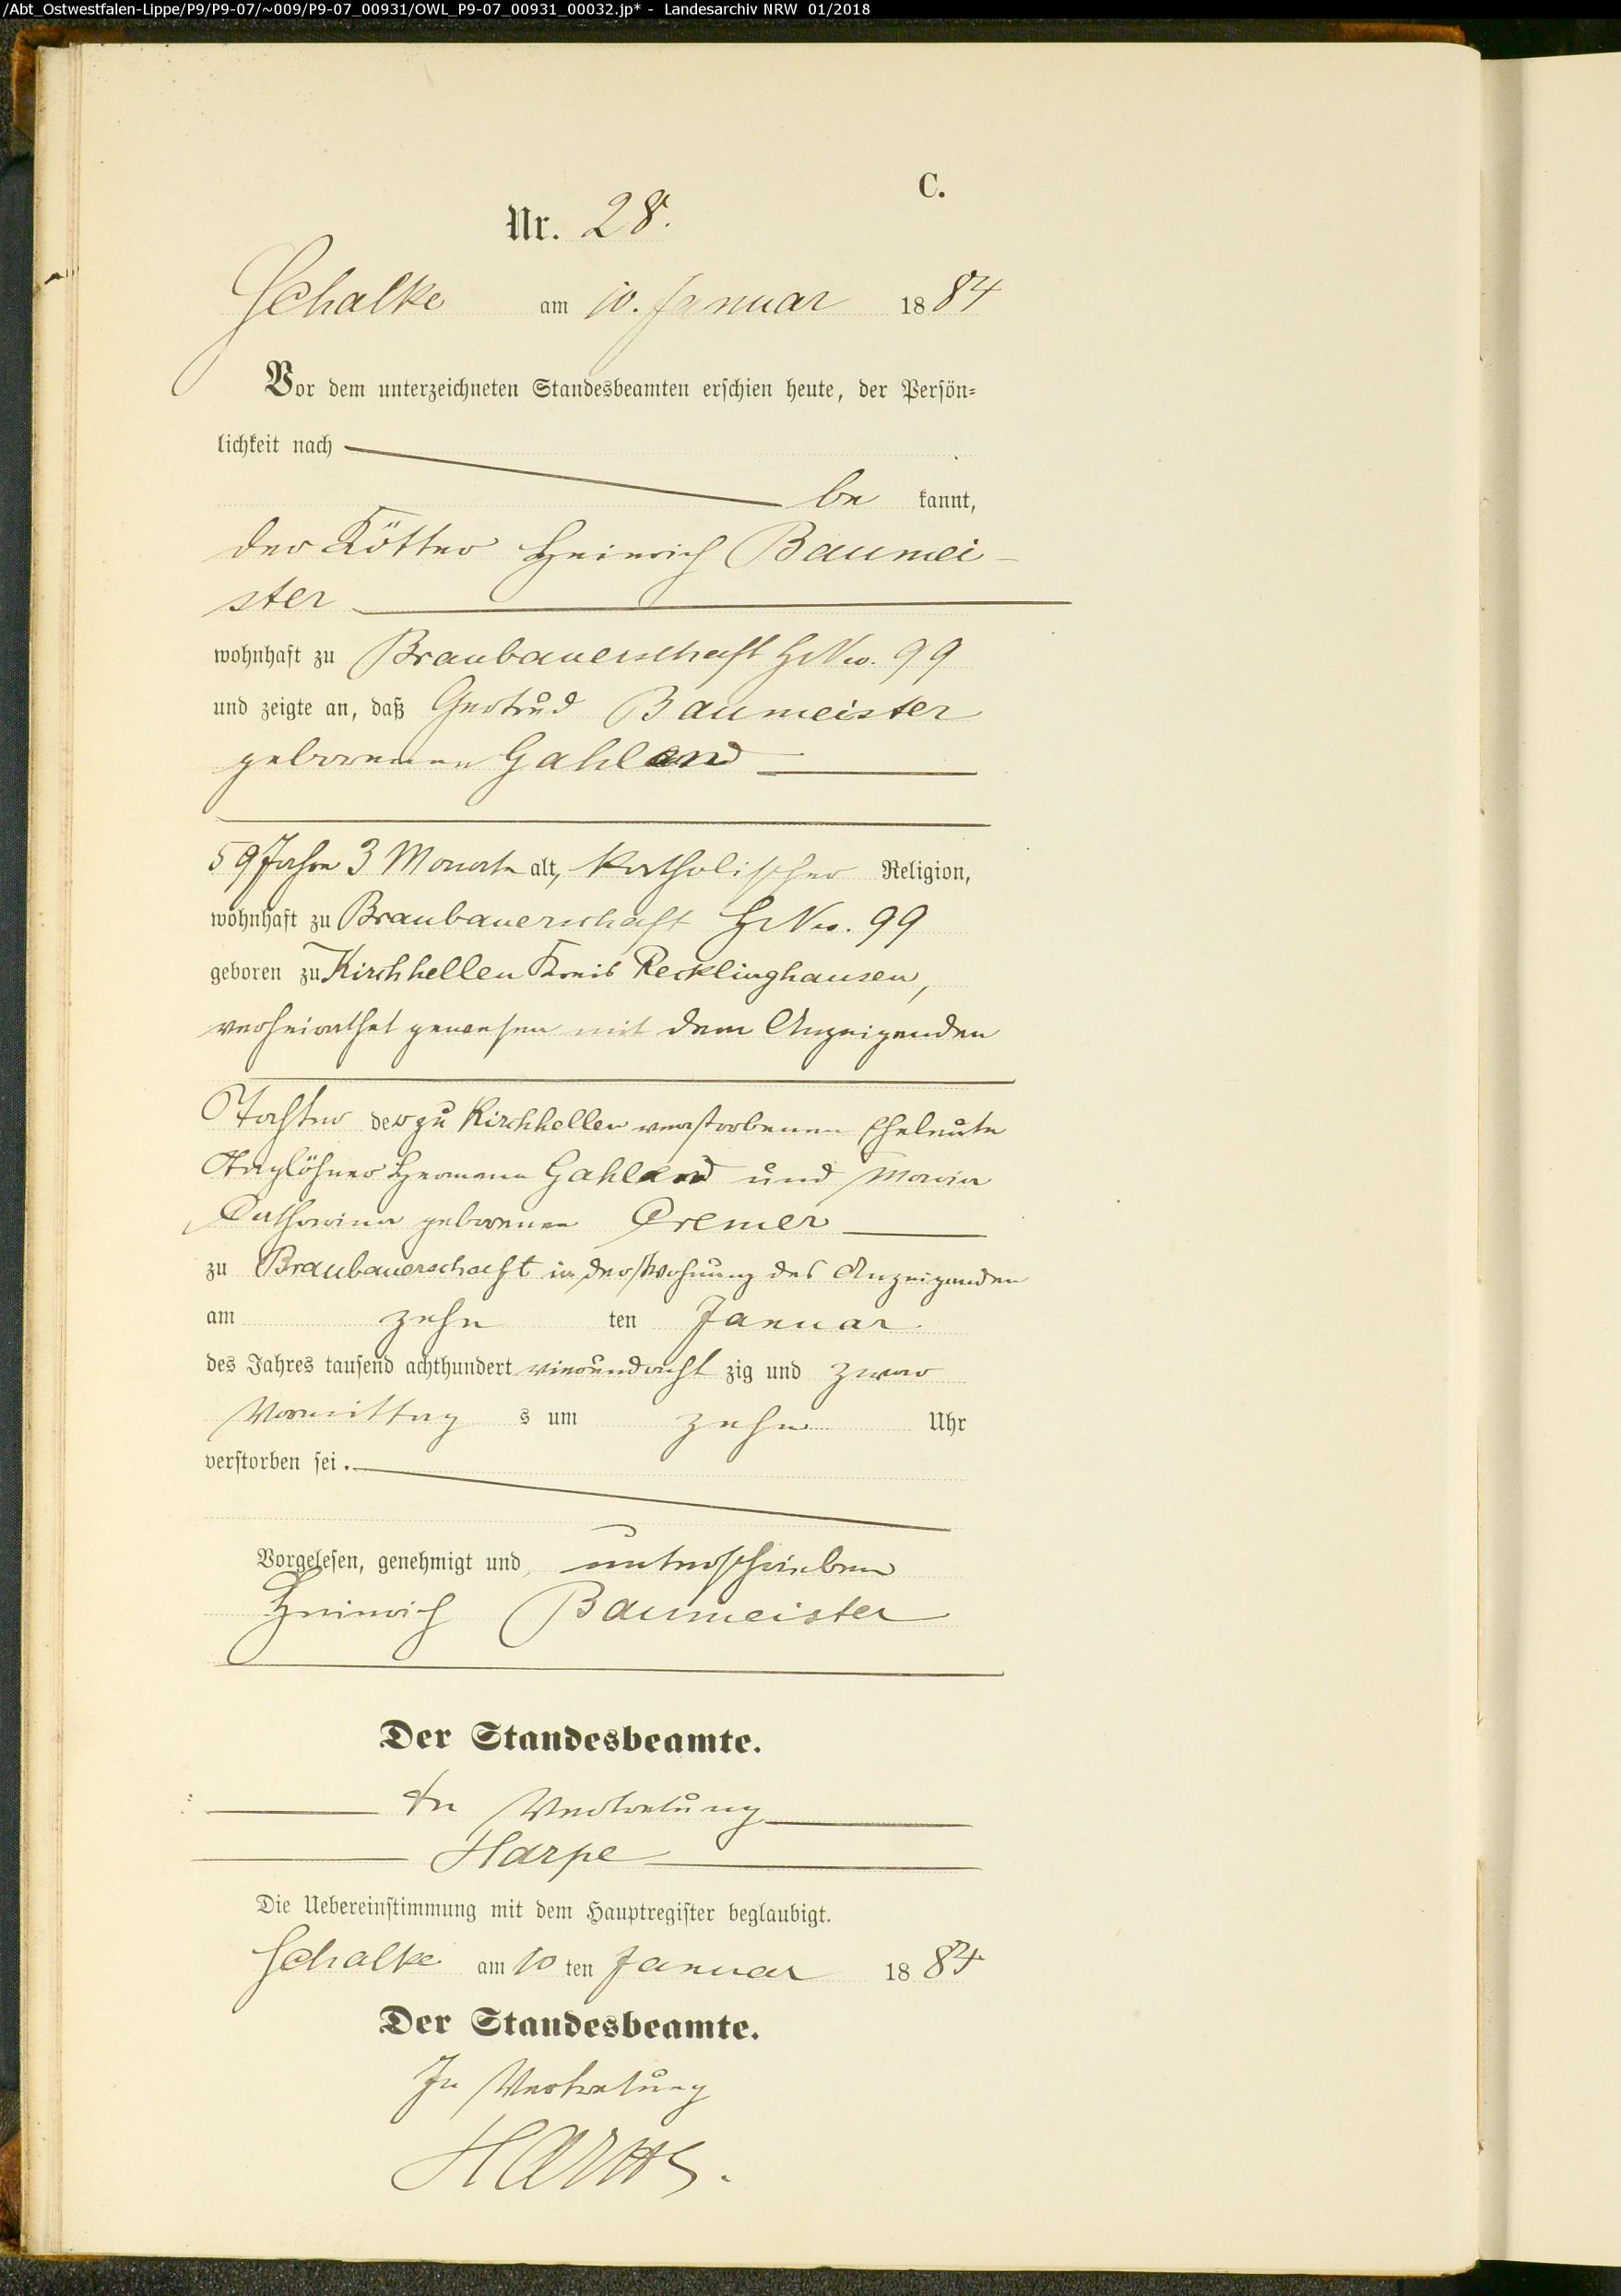 /Abt_Ostwestfalen-Lippe/P9/P9-07/~009/P9-07_00931/OWL_P9-07_00931_00032.jp* - Landesarchiv NRW 01/2018
C.
Nr. 28.
Schalke am 10. Januar 1884
Vor dem unterzeichneten Standesbeamten erschien heute, der Persön=
lichkeit nach
be kannt,
der Kötter Heinrich Baumei-
ster
wohnhaft zu Braubauerschaft HNro. 99
und zeigte an, daß Gertrud Baumeister
geborenen Gahland
59 Jahre 3 Monate alt, katholischer Religion,
wohnhaft zu Braubauerschaft HNro. 99
geboren zu Kirchhellen Kreis Recklinghausen,
verheirathet gewesen mit dem Anzeigenden
Tochter der zu Kirchhellen verstorbenen Eheleute
Taglöhner Hermann Gahland und Maria
Catharina geborenen Cremer
zu Braubauerschaft in der Wohnung des Anzeigenden
am zehn ten Januar
des Jahres tausend achthundert vierundacht zig und zwar
Vormittag s um zehn Uhr
verstorben sei.
Vorgelesen, genehmigt und unterschrieben
Heinrich Baumeister
Der Standesbeamte.
In Vertretung
Harpe
Die Uebereinstimmung mit dem Hauptregister beglaubigt.
Schalke am 10 ten Januar 1884
Der Standesbeamte.
In Vertretung